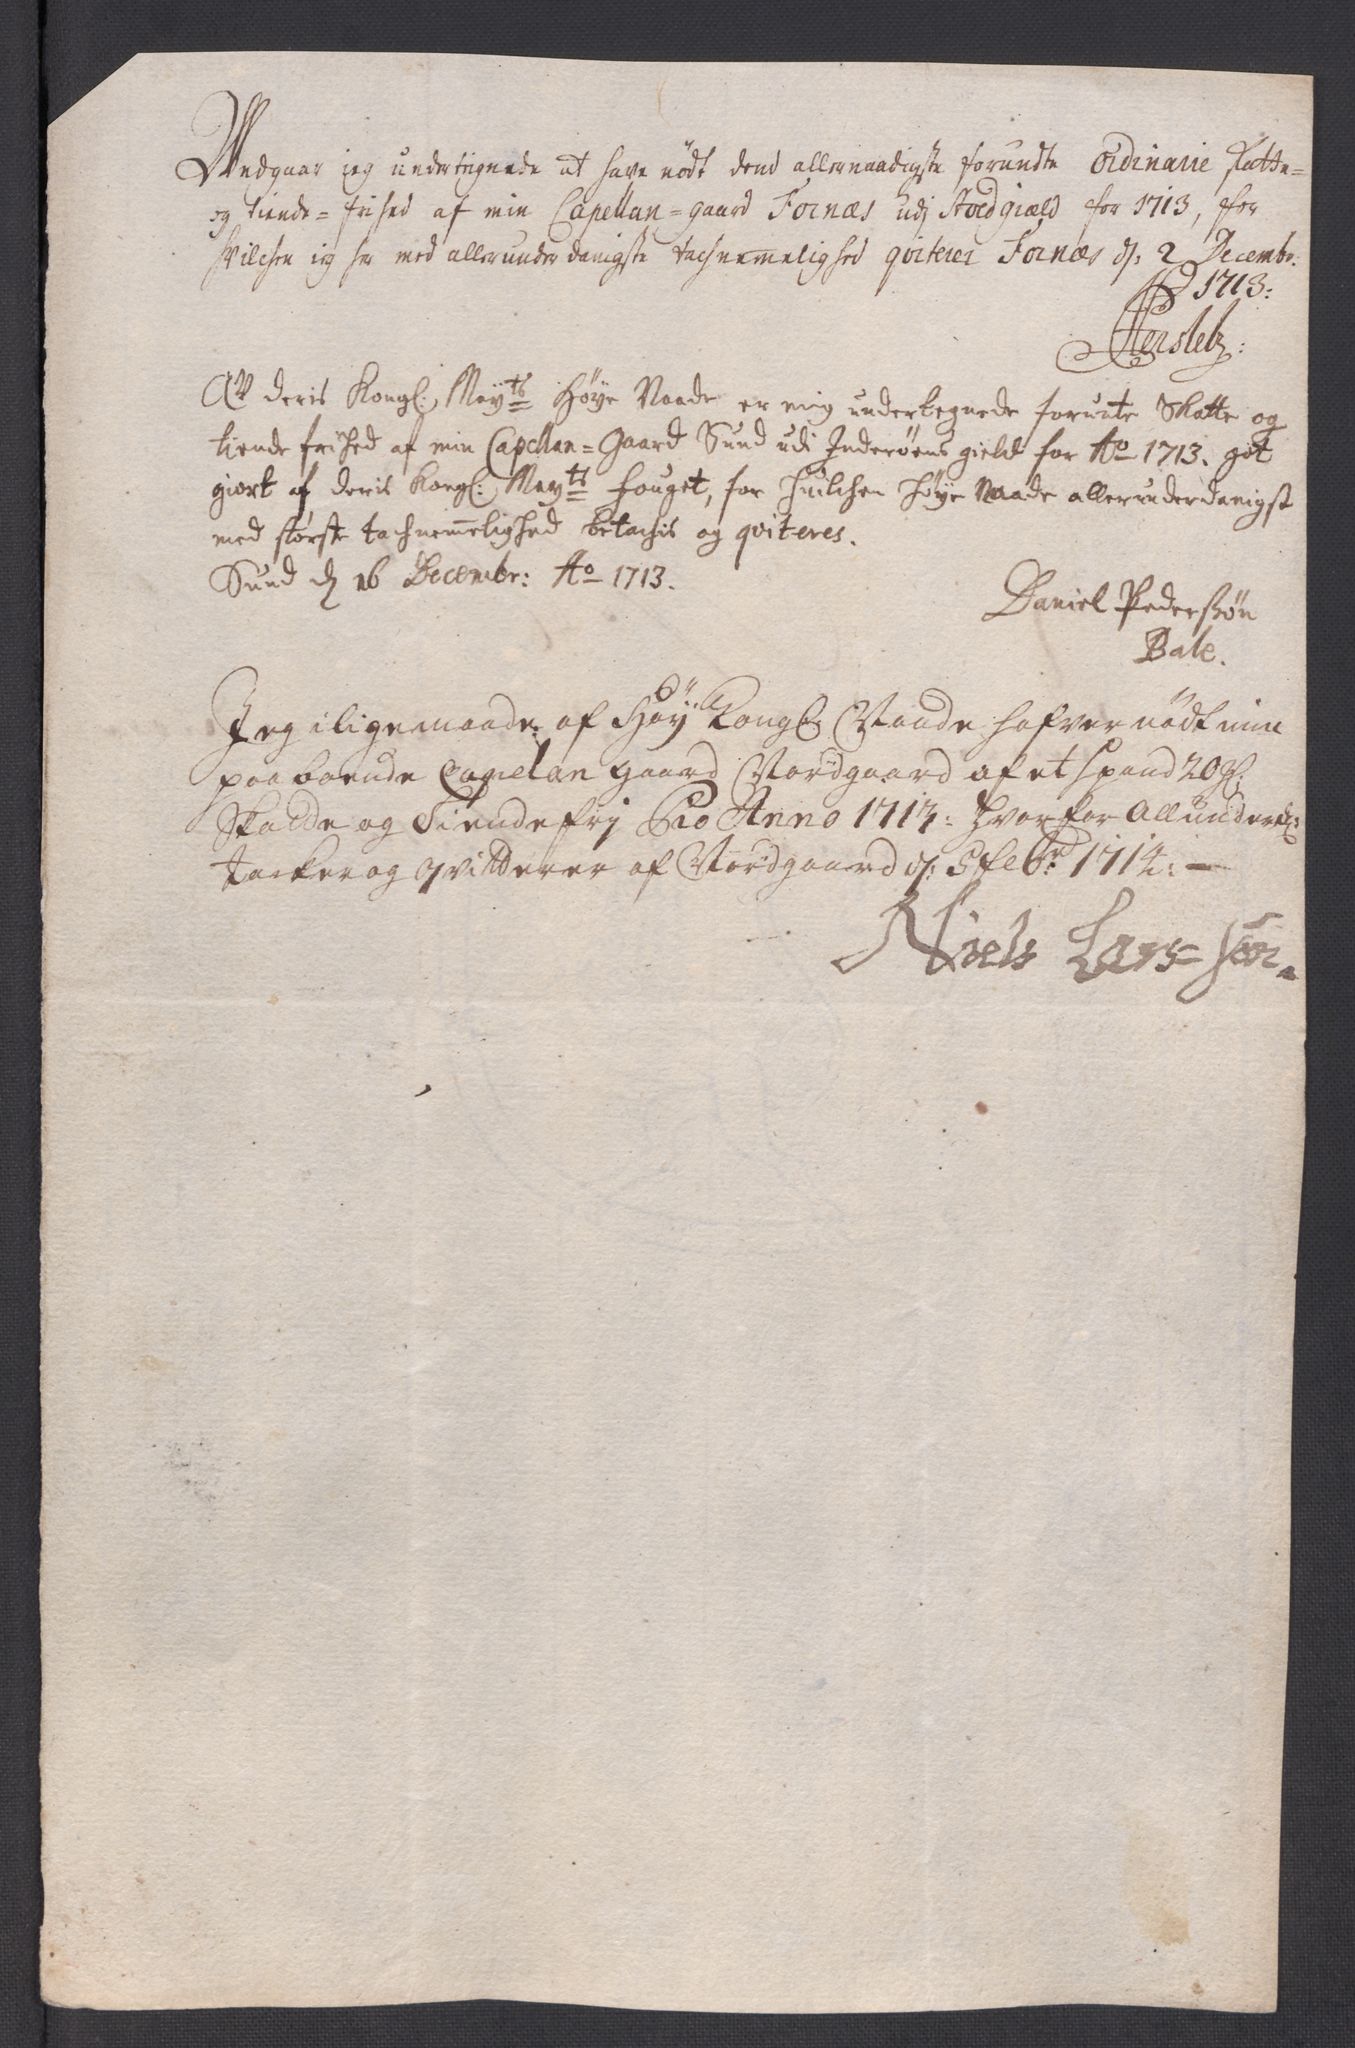 Vedgaar jeg undertegnede at have nödt dend allernaadigste forundte ordinarie Skatte=
og tiende=frihed af min Capellan=gaard Fornæs udj Stodgiæld for 1713, for
hvilchen jeg her med allerunderdanigste tachnemmelighed qviterer Fornæs d: 2 Decembr:
1713:
Af deris Kongl: Mayts Høye Naade er mig undertegnede forunte Skatte og
tiende frihed af min Capellan=Gaard Sund udi Inderøens gield for Ao 1713. got
giort af deris Kongl: Mayts fouget, for huilchen Høye Naade allerunderdanigst
med største tachnemmelighed betachis og qviteres.
Sund d 16 Decembr: Ao 1713.
Daniel Pederssøn
Bale.
Jeg iligemaade: af Høy Kongl: Naade hafver nödt min
paaboende Capelan gaard Nordgaard af et spand
Skadde og Tiende frj Pro Anno 1713: Hvorfor Allunderd:
tacker og qvitterer af Nordgaard d: 5 febr: 1714:
Niels Lars=søn